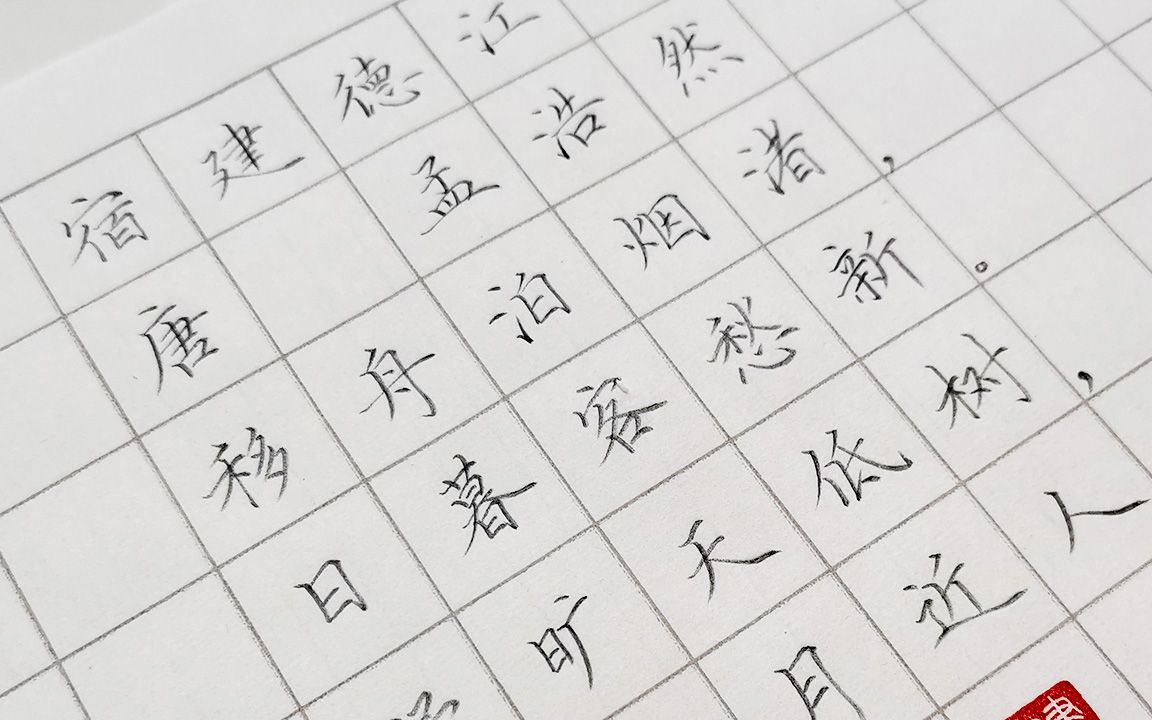 宿建德江
唐 孟浩然
移舟泊烟渚，
日暮客愁新。
旷天低树，
月近人